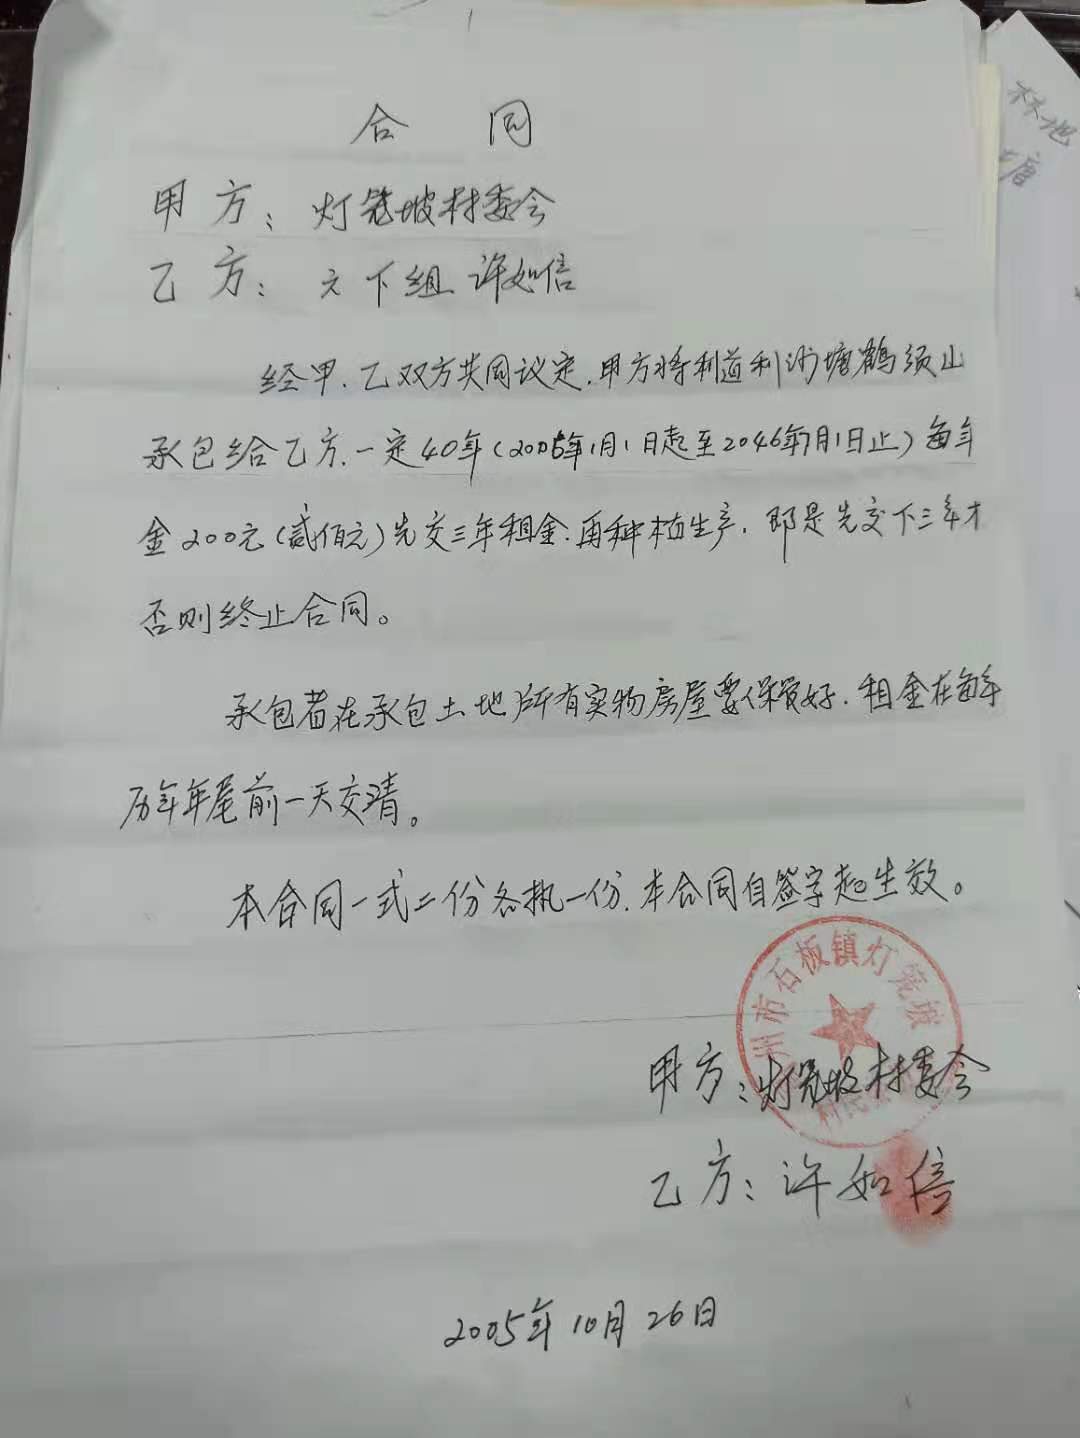 合 同
甲方：灯笼坡村委会
乙方：元下组 许如信
经甲、乙双方共同议定，甲方将利道利沙塘鹤须山
承包给乙方，一定40年（2006年1月1日起至2046年1月1日止）每年
金200元（贰佰元）先交三年租金，再种植生产，即是先交下三年才
否则终止合同。
承包者在承包土地所有实物房屋要保管好，租金在每年
历年年尾前一天交清。
本合同一式二份各执一份，本合同自签字起生效。
州市石板镇灯笼坡
甲方：灯笼坡村委会
乙方：许如信
2005年10月26日
林地
塘